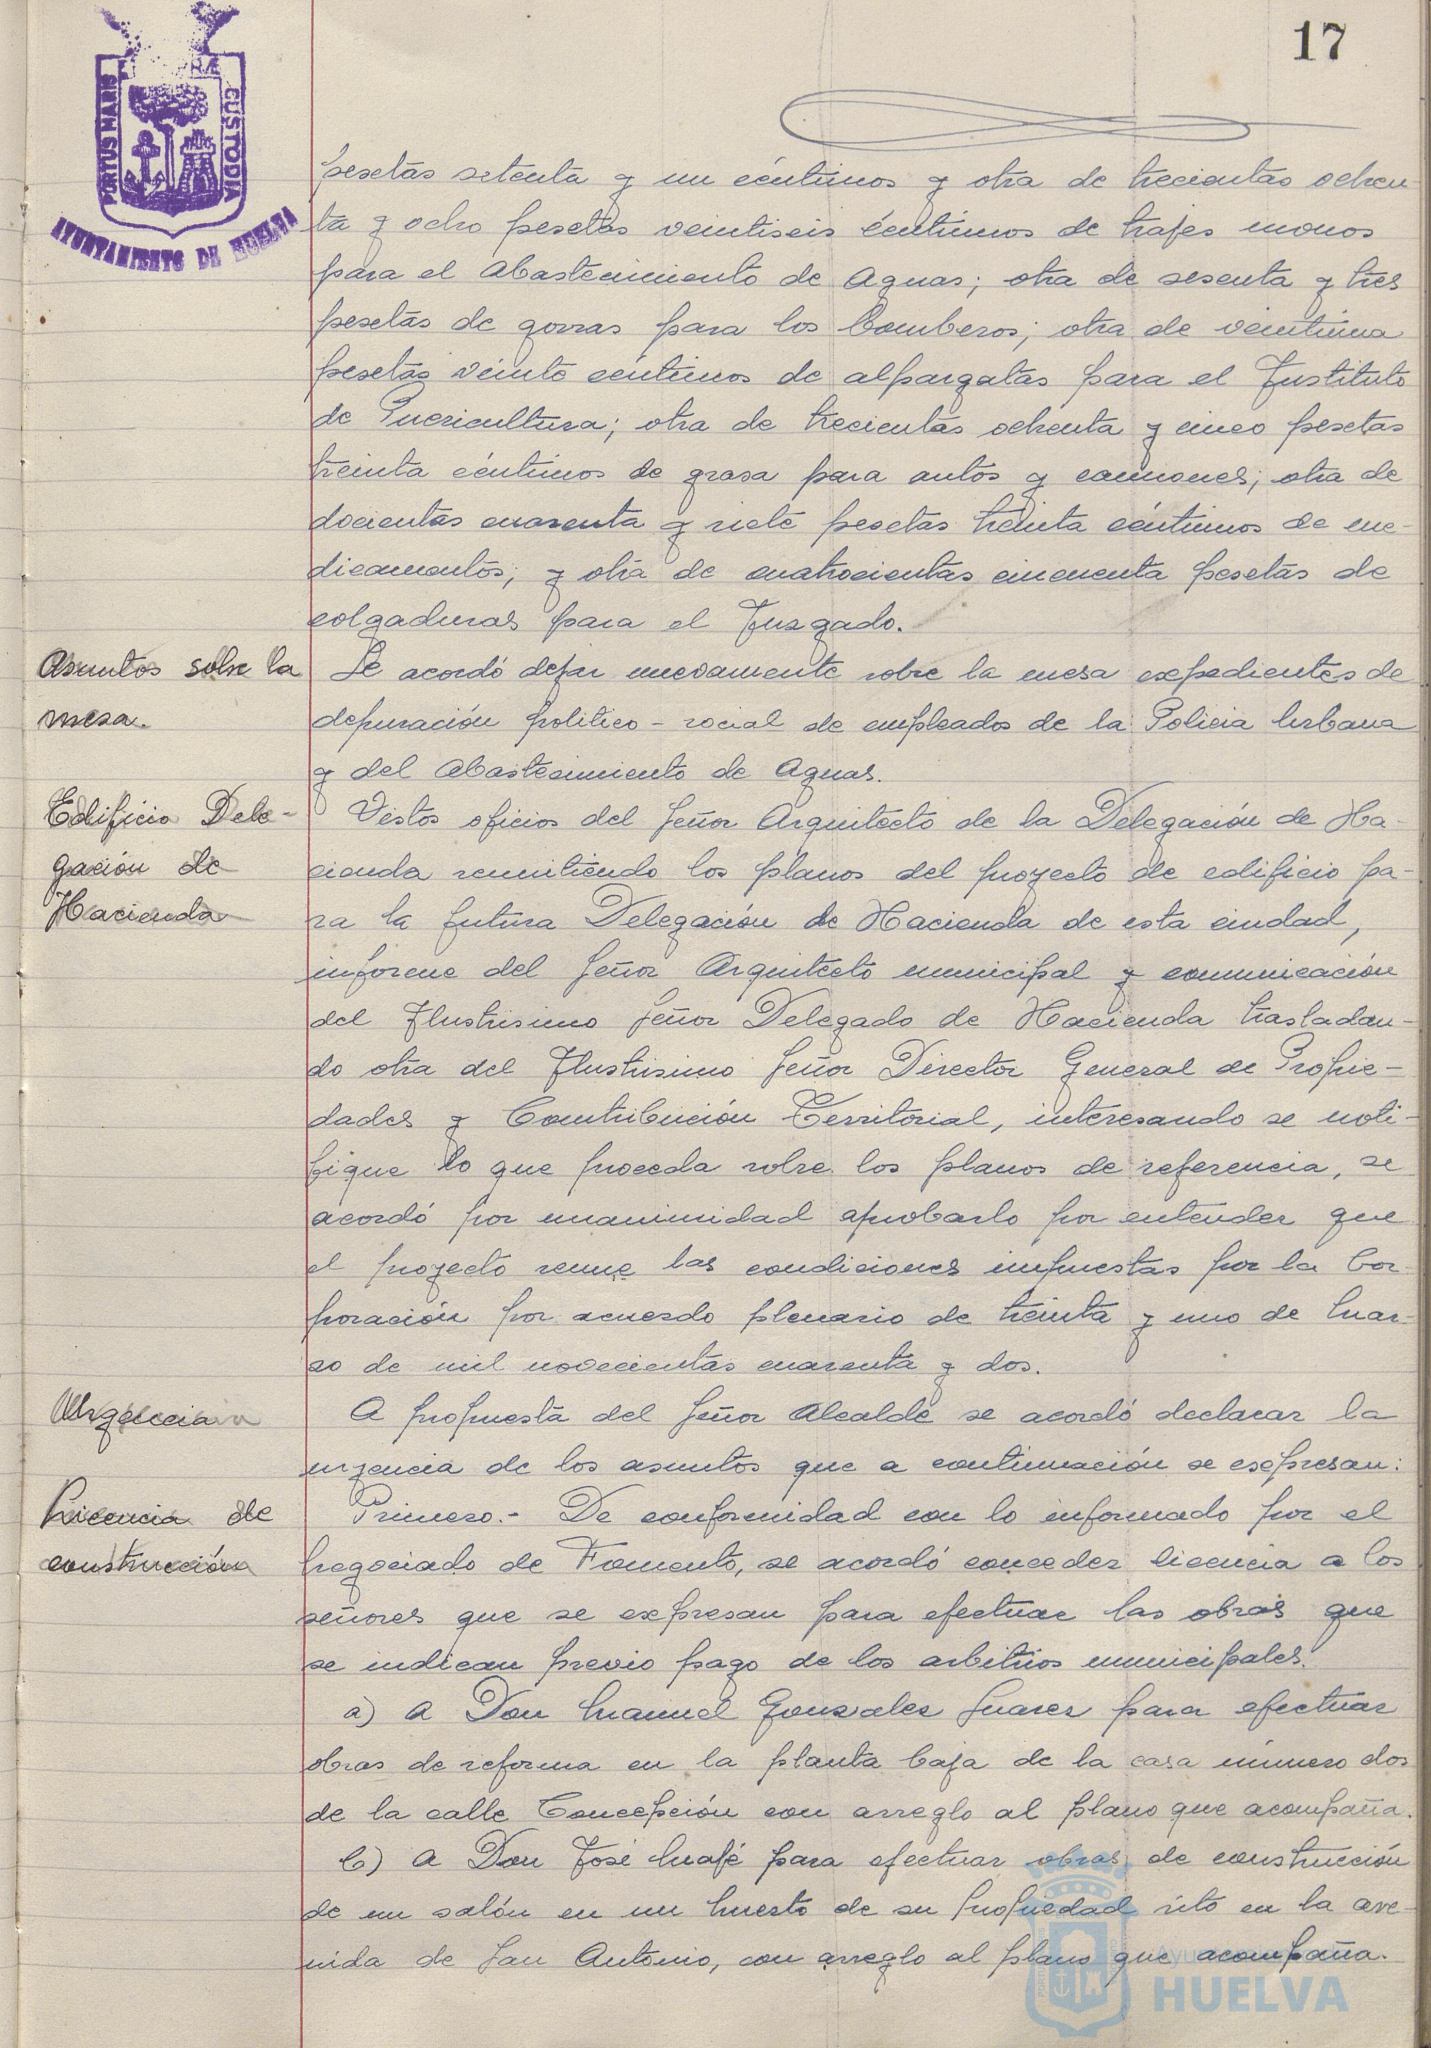 17
PORTUS MARIS
CUSTODIA
AYUNTAMIENTO DE HUELVA
pesetas setenta y un céntimos y otra de trecientas ochen-
ta y ocho pesetas veintiseis céntimos de trajes monos
para el Abastecimiento de Aguas; otra de sesenta y tres
pesetas de gorras para los Bomberos; otra de veintiuna
pesetas veinte céntimos de alpargatas para el Instituto
de Puericultura; otra de trecientas ochenta y cinco pesetas
treinta céntimos de grasa para autos y camiones; otra de
docientas cuarenta y siete pesetas treinta céntimos de me-
dicamentos; y otra de cuatrocientas cincuenta pesetas de
colgaduras para el Juzgado.
Asuntos sobre la
mesa.
Se acordó dejar nuevamente sobre la mesa expedientes de
depuración politico-social de empleados de la Policia Urbana
y del Abastecimiento de Aguas.
Edificio Dele-
gación de
Hacienda
Vistos oficios del Señor Arquitecto de la Delegación de Ha-
cienda remitiendo los planos del proyecto de edificio pa-
ra la futura Delegación de Hacienda de esta ciudad,
informe del Señor Arquitecto municipal y comunicación
del Ilustrisimo Señor Delegado de Hacienda trasladan-
do otra del Ilustrisimo Señor Director General de Propie-
dades y Contribución Territorial, interesando se noti-
fique lo que proceda sobre los planos de referencia, se
acordó por unanimidad aprobarlo por entender que
el proyecto reune las condiciones impuestas por la Cor-
poración por acuerdo plenario de treinta y uno de Mar-
zo de mil novecientas cuarenta y dos.
Urgencia
A propuesta del Señor Alcalde se acordó declarar la
urgencia de los asuntos que a continuación se expresan:
Licencia de
construcción
Primero.- De conformidad con lo informado por el
Negociado de Fomento, se acordó conceder licencia a los
señores que se expresan para efectuar las obras que
se indican previo pago de los arbitrios municipales.
a) A Don Manuel Gonzalez Suarez para efectuar
obras de reforma en la planta baja de la casa número dos
de la calle Concepción con arreglo al plano que acompaña.
b) A Don José Mafé para efectuar obras de construcción
de un salón en un huerto de su propiedad sito en la ave-
nida de San Antonio, con arreglo al plano que acompaña.
HUELVA